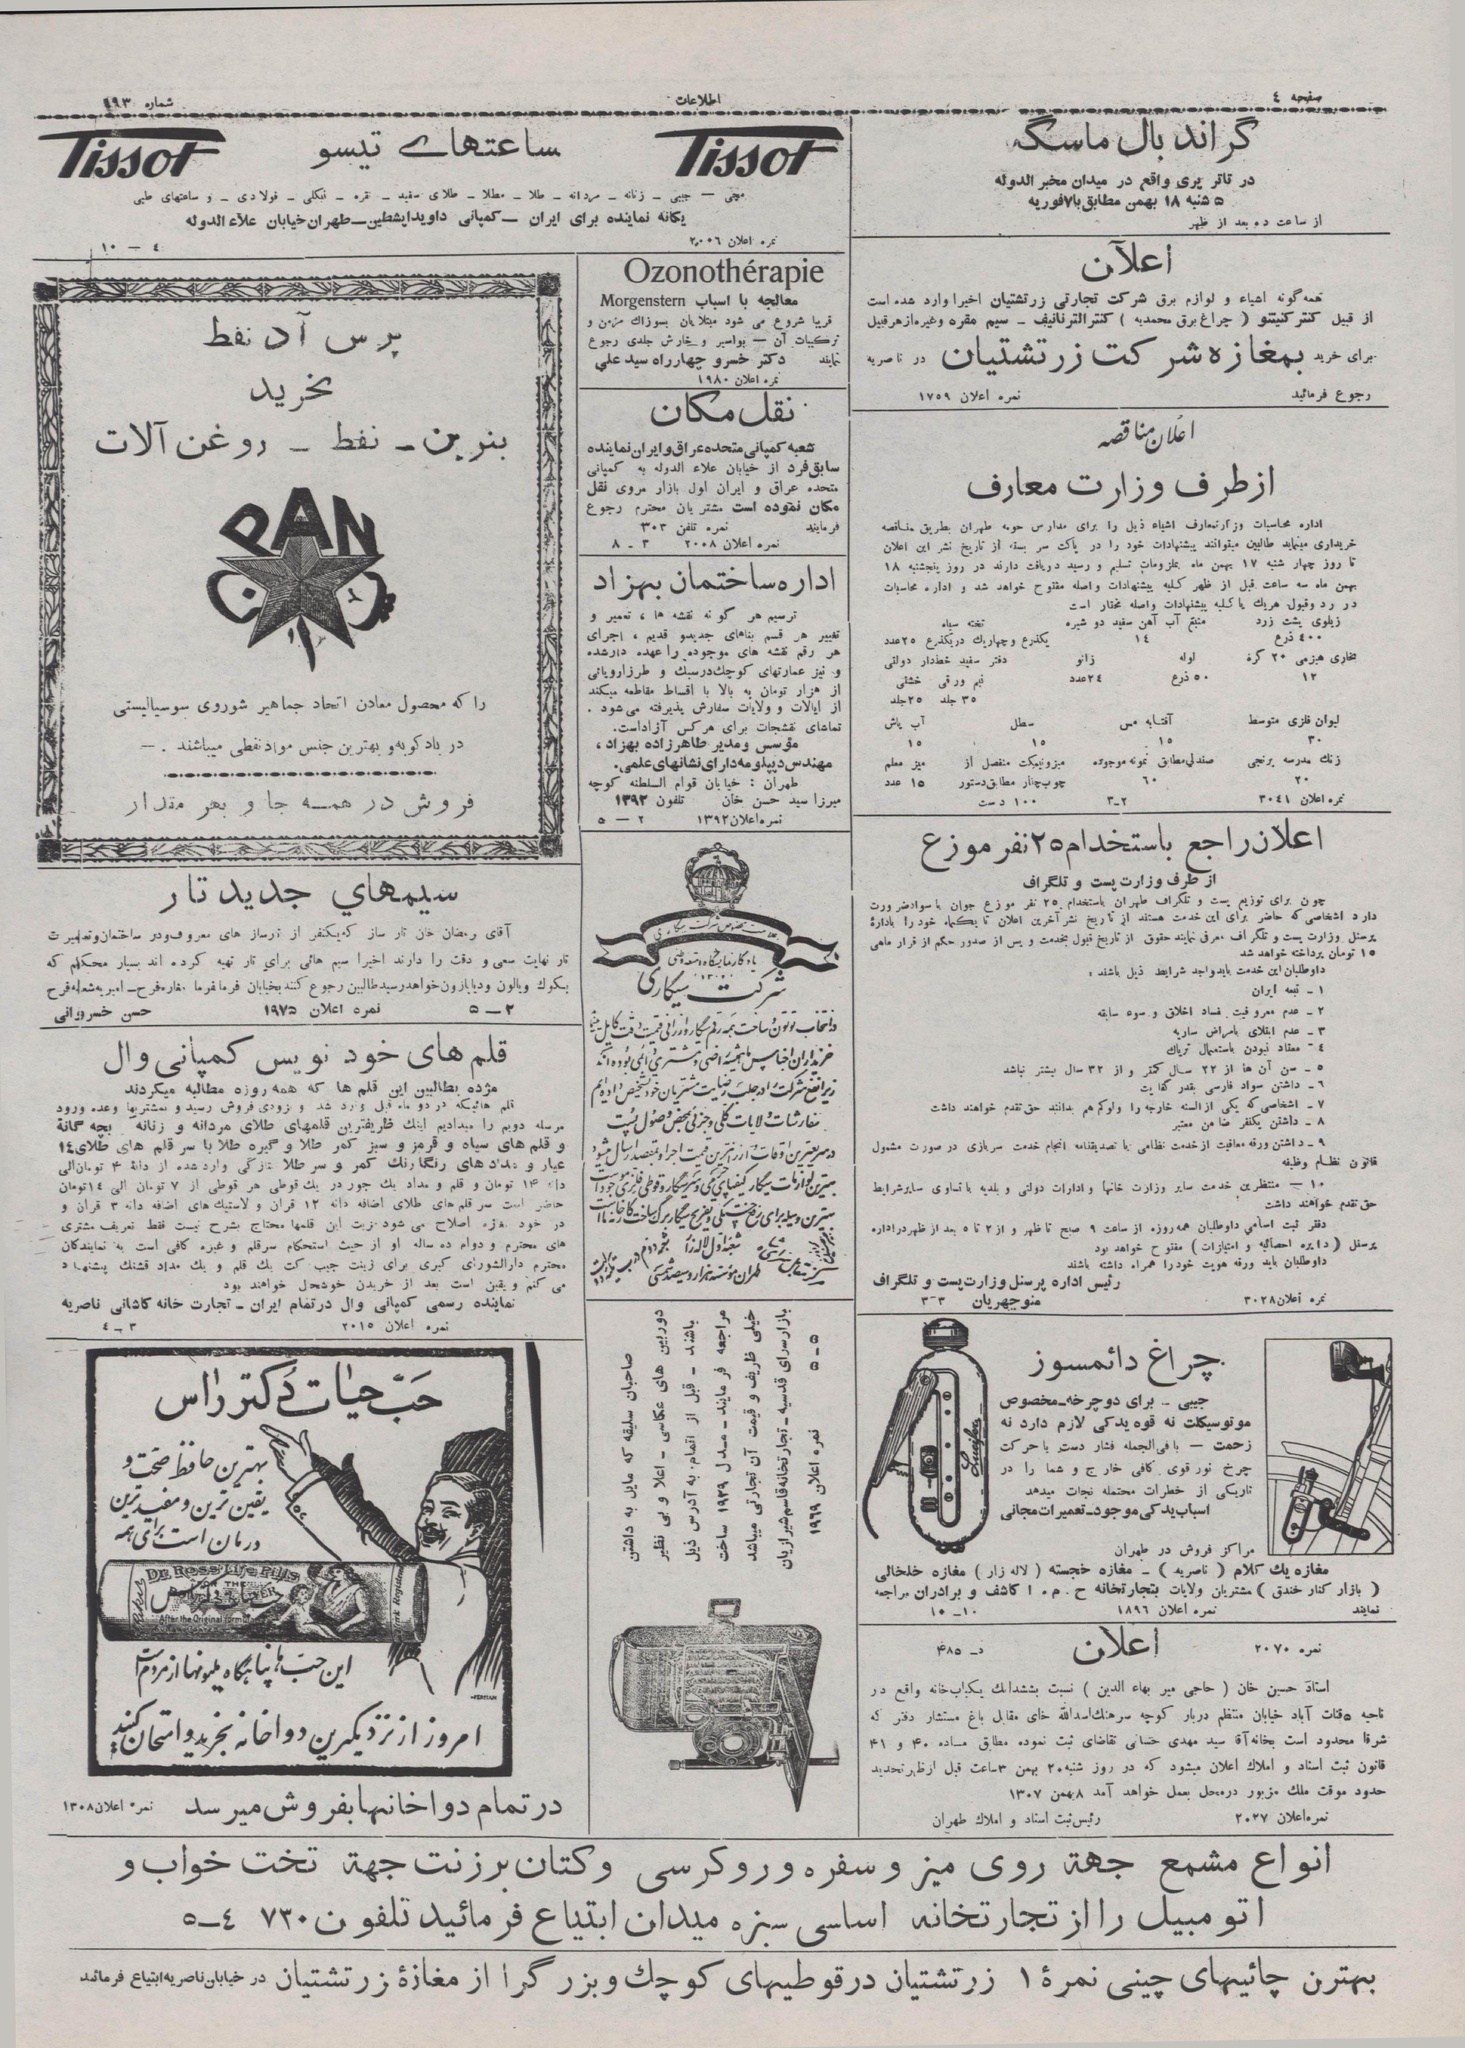 صفحه ٤
اطلاعات
شماره ٤٩٣
گراند بال ماسگه
در تاتر پری واقع در میدان مخبر الدوله
٥ شنبه ١٨ بهمن مطابق با ٧ فوریه
از ساعت ده بعد از ظهر
Tissot
ساعتهای تیسو
Tissot
مچی — جیبی — زنانه — مردانه — طلا — مطلا — طلای سفید — نقره — نیکلی — فولادی — و ساعتهای طبی
یکانه نماینده برای ایران — کمپانی داوید اپشطین — طهران خیابان علاء الدوله
نمره اعلان ٢٠٠٦
٤ — ١٠
اعلان
همه گونه اشیاء و لوازم برق شرکت تجارتی زرتشتیان اخیرا وارد شده است
از قبیل کنتر کنیتنو ( چراغ برق محمدیه ) کنتر التر نانیف — سیم مقره و غیره از هر قبیل
برای خرید بمغازه شرکت زرتشتیان در ناصریه
رجوع فرمائید
نمره اعلان ١٧٥٩
اعلان مناقصه
از طرف وزارت معارف
اداره محاسبات وزارتمعارف اشیاء ذیل را برای مدارس حومه طهران بطریق مناقصه
خریداری مینماید طالبین میتوانند پیشنهادات خود را در پاکت سر بسته از تاریخ نشر این اعلان
تا روز چهار شنبه ١٧ بهمن ماه بملزومات تسلیم و رسید دریافت دارند در روز پنجشنبه ١٨
بهمن ماه سه ساعت قبل از ظهر کلیه پیشنهادات واصله مفتوح خواهد شد و اداره محاسبات
در رد و قبول هریك یا کلیه پیشنهادات واصله مختار است
زیلوی پشت زرد
منبع آب آهن سفید دو شیره
تخته سیاه
٤٠٠ ذرع
١٤
یکذرع و چهاریك در یکذرع ٢٥ عدد
بخاری هیزمی ٢٠ گره
لوله
زانو
دفتر سفید خطدار دولتی
١٢
٥٠ ذرع
٢٤ عدد
نیم ورقی خشتی
٣٥ جلد ٢٥ جلد
لیوان فلزی متوسط
آفتابه مس
سطل
آب پاش
٣٠
١٥
١٥
١٥
زنك مدرسه برنجی
صندلی مطابق نمونه موجوده
میز و نیمکت منفصل از
میز معلم
٢٠
٦٠
چوب چنار مطابق دستور
١٥ عدد
نمره اعلان ٣٠٤١
٢—٣
١٠٠ دست
اعلان راجع باستخدام ٢٥ نفر موزع
از طرف وزارت پست و تلگراف
چون برای توزیع پست و تلگراف طهران باستخدام ٢٥ نفر موزع جوان با سواد ضرورت
دارد اشخاصی که حاضر برای این خدمت هستند از تاریخ نشر آخرین اعلان تا یکماه خود را بادارهٔ
پرسنل وزارت پست و تلگراف معرفی نمایند حقوق از تاریخ قبول بخدمت و پس از صدور حکم از قرار ماهی
١٥ تومان پرداخته خواهد شد
داوطلبان این خدمت باید واجد شرایط ذیل باشند :
١ — تبعه ایران
٢ — عدم معروفیت فساد اخلاق و سوء سابقه
٣ — عدم ابتلای بامراض ساریه
٤ — معتاد نبودن باستعمال تریاك
٥ — سن آن ها از ٢٢ سال کمتر و از ٣٢ سال بیشتر نباشد
٦ — داشتن سواد فارسی بقدر کفایت
٧ — اشخاصی که یکی از السنه خارجه را ولو کم هم بدانند حق تقدم خواهند داشت
٨ — داشتن یکنفر ضامن معتبر
٩ — داشتن ورقه معافیت از خدمت نظامی یا تصدیقنامه انجام خدمت سربازی در صورت مشمول
قانون نظام وظیفه
١٠ — منتظرین خدمت سایر وزارت خانها و ادارات دولتی و بلدیه با تساوی سایر شرایط
حق تقدم خواهند داشت
دفتر ثبت اسامی داوطلبان همه روزه از ساعت ٩ صبح تا ظهر و از ٢ تا ٥ بعد از ظهر در اداره
پرسنل ( دایره احصائیه و امتیازات ) مفتوح خواهد بود
داوطلبان باید ورقه هویت خود را همراه داشته باشند
رئیس اداره پرسنل وزارت پست و تلگراف
نمره اعلان ٣٠٢٨
٣—٣
منوچهریان
چراغ دائمسوز
جیبی .. برای دوچرخه — مخصوص
موتوسیکلت نه قوه یدکی لازم دارد نه
زحمت — با فی الجمله فشار دست یا حرکت
چرخ نور قوی کافی خارج و شما را در
تاریکی از خطرات محتمله نجات میدهد
اسباب یدکی موجود — تعمیرات مجانی
Lucifer
مراکز فروش در طهران
مغازه یك کلام ( ناصریه ) — مغازه خجسته ( لاله زار ) مغازه خلخالی
( بازار کنار خندق ) مشتریان ولایات بتجارتخانه ح . م . ا کاشف و برادران مراجعه
نمایند
نمره اعلان ١٨٩٦
١٠—١٠
نمره ٢٠٧٠
اعلان
د— ٤٨٥
استاد حسین خان ( حاجی میر بهاء الدین ) نسبت بششدانك یکبابخانه واقع در
ناحیه ٥ قنات آباد خیابان منتظم دربار کوچه سرهنك اسدالله خان مقابل باغ مستشار دفتر که
شرقا محدود است بخانه آقا سید مهدی حسابی تقاضای ثبت نموده مطابق ماده ٤٠ و ٤١
قانون ثبت اسناد و املاك اعلان میشود که در روز شنبه ٢٠ بهمن ٣ ساعت قبل از ظهر تحدید
حدود موقت ملك مزبور در محل بعمل خواهد آمد ٨ بهمن ١٣٠٧
نمره اعلان ٢٠٢٧
رئیس ثبت اسناد و املاك طهران
Ozonothérapie
معالجه با اسباب Morgenstern
قریبا شروع می شود مبتلایان بسوزاك مزمن و
ترکیبات آن — بواسیر و خارش جلدی رجوع
نمایند دکتر خسرو چهارراه سید علی
نمره اعلان ١٩٨٠
نقل مکان
شعبه کمپانی متحده عراق و ایران نماینده
سابق فرد از خیابان علاء الدوله به کمپانی
متحده عراق و ایران اول بازار مروی نقل
مکان نموده است مشتریان محترم رجوع
فرمایند نمره تلفن ٣٠٣
نمره اعلان ٢٠٠٨
٣ — ٨
اداره ساختمان بهزاد
ترسیم هر گونه نقشه ها ، تعمیر و
تغییر هر قسم بناهای جدید و قدیم ، اجرای
هر رقم نقشه های موجوده را عهده دار شده
و نیز عمارتهای کوچك در سبك و طرز اروپائی
از هزار تومان به بالا با اقساط مقاطعه میکند
از ایالات و ولایات سفارش پذیرفته می شود .
تماشای نقشجات برای هر کس آزاد است.
مؤسس و مدیر طاهرزاده بهزاد ،
مهندس دیپلومه دارای نشانهای علمی.
طهران : خیابان قوام السلطنه کوچه
میرزا سید حسن خان تلفون ١٣٩٢
نمره اعلان ١٣٩٢
٢ — ٥
علامت مخصوص شرکت سیگاری
یادگار نمایشگاه امتعه وطنی
١٣٠٢
شرکت سیگاری
در انتخاب توتون و ساخت همه رقم سیگار و ارزانی قیمت دقت کامل
خریداران اجناس ما همیشه راضی و مشتری دائمی بوده اند
زیرا نفع شرکت را در جلب رضایت مشتریان خود تشخیص داده ایم
سفارشات ولایات کلی و جزئی بمحض وصول پست
در سریعترین اوقات با نازلترین قیمت اجرا و بمقصد ارسال میشود
صاحبان سلیقه که مایل به داشتن
دوربین های عکاسی — اعلا و بی نظیر
باشند — قبل از اتمام به آدرس ذیل
مراجعه فرمایند — مدل ١٩٢٩ ساخت
خیلی ظریف و قیمت آن تجارتی میباشد
بازار سرای قدسیه — تجارتخانه قاسم شیرازیان
نمره اعلان ١٩٦٩
٥—٥
پرس آد نفط
بخرید
بنزین — نفط — روغن آلات
PAN
را که محصول معادن اتحاد جماهیر شوروی سوسیالیستی
در بادکوبه و بهترین جنس مواد نفطی میباشند . —
فروش در همه جا و بهر مقدار
سیمهای جدید تار
آقای رمضان خان تار ساز که یکنفر از تارساز های معروف و در ساختمان و تعمیرات
تار نهایت سعی و دقت را دارند اخیرا سیم هائی برای تار تهیه کرده اند بسیار محکم که
بکوك ویالون و دیاپازون خواهد رسید طالبین رجوع کنند بخیابان فرمانفرما مغازه فرح — امیریه شعبه فرح
٢—٥
نمره اعلان ١٩٧٥
حسن خسروانی
قلم های خود نویس کمپانی وال
مژده بطالبین این قلم ها که همه روزه مطالبه میکردند
قلم هائیکه در دو ماه قبل وارد شد و بزودی فروش رسید و بمشتریها وعده ورود
مرسله دویم را میدادیم اینك ظریفترین قلمهای طلای مردانه و زنانه و بچه گانه
و قلم های سیاه و قرمز و سبز کمر طلا و گیره طلا با سر قلم های طلای ١٤
عیار و مداد های رنگارنك کمر و سر طلا بتازگی وارد شده از دانهٔ ٤ تومان الی
دانه ١٤ تومان و قلم و مداد یك جور در یك قوطی هر قوطی از ٧ تومان الی ١٤ تومان
حاضر است سر قلم های طلای اضافه دانه ١٢ قران و لاستیك های اضافه دانه ٣ قران و
در خود مغازه اصلاح می شود مزیت این قلمها محتاج بشرح نیست فقط تعریف مشتری
های محترم و دوام ده ساله او از حیث استحکام سر قلم و غیره کافی است به نمایندگان
محترم دارالشورای کبری برای زینت جیب کت یك قلم و یك مداد قشنك پیشنهاد
می کنم و یقین است بعد از خریدن خوشحل خواهند بود
نماینده رسمی کمپانی وال در تمام ایران — تجارت خانه کاشانی ناصریه
نمره اعلان ٢٠١٥
٣—٤
حَبّ حیات دُکتر راس
بهترین حافظ صحت و
یقین ترین و مفیدترین
درمان است برای همه
DR ROSS' Life Pills
FOR THE
After the Original formula
این حَبّ ها پناهگاه ملیونها از مردم است
امروز از نزدیکترین دواخانه بخرید و امتحان کنید
در تمام دواخانها بفروش میرسد
نمره اعلان ١٣٠٨
انواع مشمع جهة روی میز و سفره و رو کرسی و کتان برزنت جهة تخت خواب و
اتومبیل را از تجارتخانه اساسی سبزه میدان ابتیاع فرمائید تلفون ٧٣٠ ٤—٥
بهترن چائیهای چینی نمرهٔ ١ زرتشتیان در قوطیهای کوچك و بزرگ را از مغازهٔ زرتشتیان در خیابان ناصریه ابتیاع فرمائید